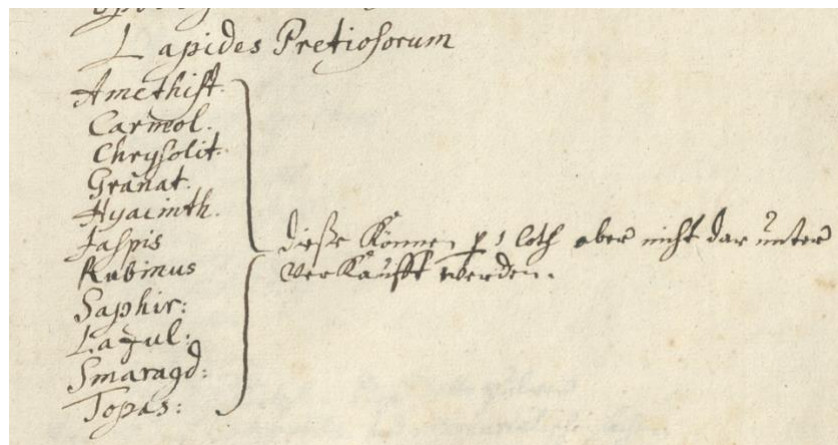 Lapides Pretiosorum
Amethist.
Carneol.
Chrysolit.
Granat.
Hyacinth.
Jaspis
Rubinus
Saphir:
Lazul:
Smaragd:
Topas:
dieße Können p 1 loth aber nicht dar unter
verKaufft werden.